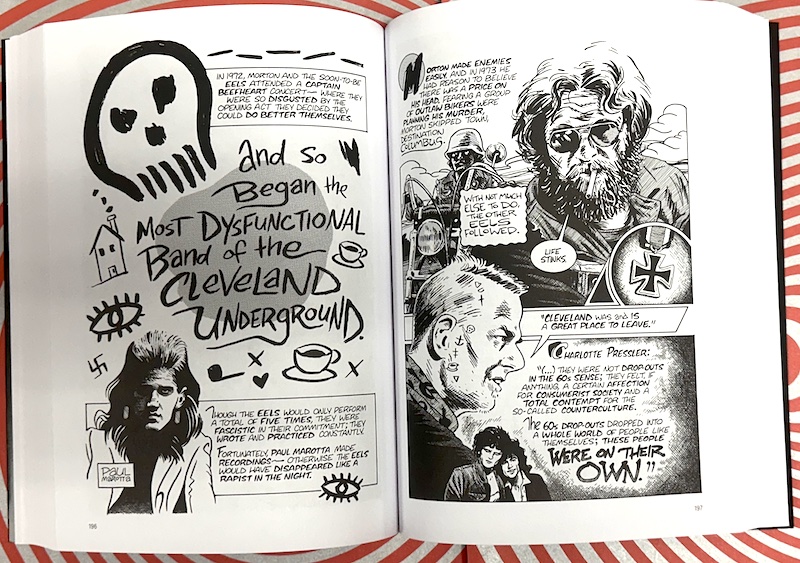 IN 1972, MORTON AND THE SOON-TO-BE
EELS ATTENDED A CAPTAIN
BEEFHEART CONCERT— WHERE THEY
WERE SO DISGUSTED BY THE
OPENING ACT THEY DECIDED THEY
COULD DO BETTER THEMSELVES.
and so
Began the
MOST DYSFUNCTIONAL
Band of the
CLEVELAND
UNDERGROUND.
THOUGH THE EELS WOULD ONLY PERFORM
A TOTAL OF FIVE TIMES, THEY WERE
FASCISTIC IN THEIR COMMITMENT; THEY
WROTE AND PRACTICED CONSTANTLY.
FORTUNATELY, PAUL MAROTTA MADE
RECORDINGS— OTHERWISE THE EELS
WOULD HAVE DISAPPEARED LIKE A
RAPIST IN THE NIGHT.
PAUL
MAROTTA
196
MORTON MADE ENEMIES
EASILY, AND IN 1973 HE
HAD REASON TO BELIEVE
THERE WAS A PRICE ON
HIS HEAD. FEARING A GROUP
OF OUTLAW BIKERS WERE
PLANNING HIS MURDER,
MORTON SKIPPED TOWN,
DESTINATION
COLUMBUS.
WITH NOT MUCH
ELSE TO DO,
THE OTHER
EELS
FOLLOWED.
LIFE
STINKS.
"CLEVELAND WAS and IS
A GREAT PLACE TO LEAVE."
CHARLOTTE PRESSLER:
"(...) THEY WERE NOT DROP-OUTS
IN THE 60s SENSE; THEY FELT, IF
ANYTHING, A CERTAIN AFFECTION
FOR CONSUMERIST SOCIETY AND A
TOTAL CONTEMPT FOR THE
SO-CALLED COUNTERCULTURE.
The 60s DROP-OUTS DROPPED INTO
A WHOLE WORLD OF PEOPLE LIKE
THEMSELVES; THESE PEOPLE
WERE ON THEIR
OWN."
197